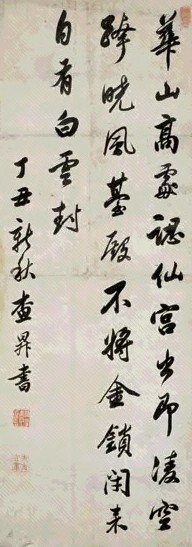 華山高處認仙宮出即凌空
曉風臺殿不將金鎖閉来
自有白雲封
丁丑新秋查昇書